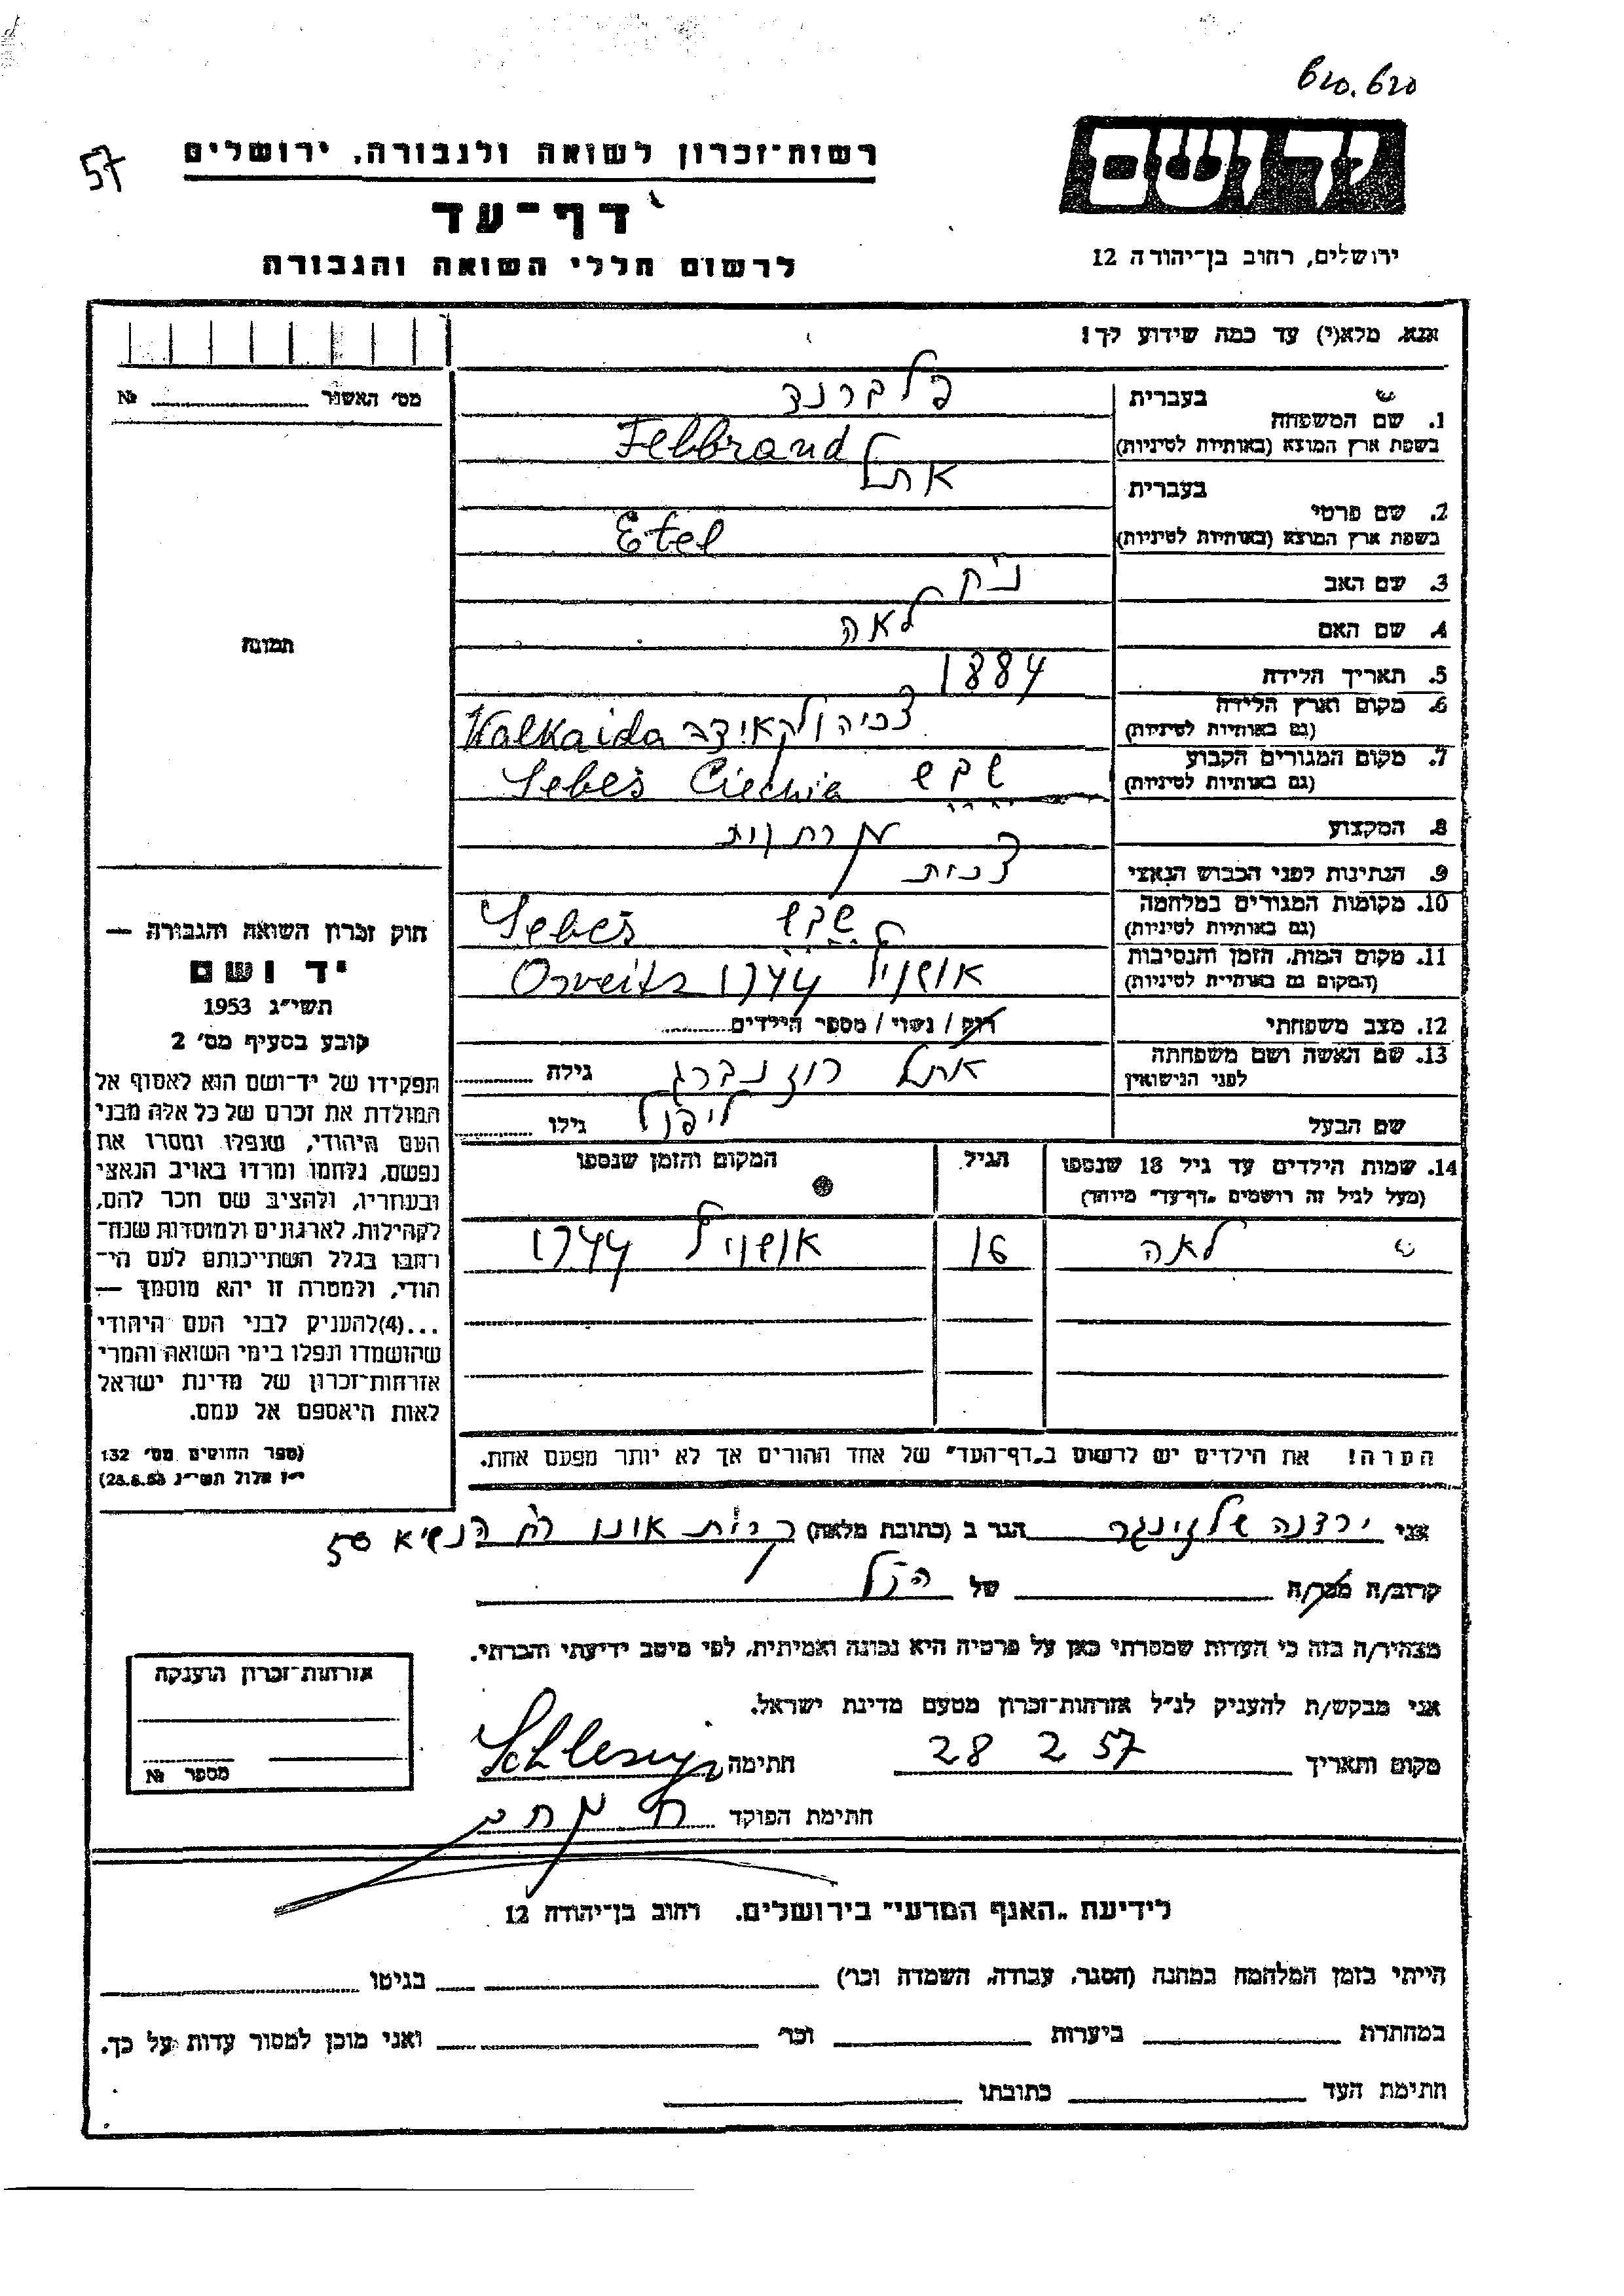 620.620
57
רשות־זכרון לשואה ולגבורה, ירושלים
יד ושם
דף־עד
לרשום חללי השואה והגבורה
ירושלים, רחוב בן־יהודה 12
אנא, מלא(י) עד כמה שידוע לך!
מס׳ האשנר № 
בעברית פלברנד
1. שם המשפחה
בשפת ארץ המוצא (באותיות לטיניות) Felbrand
בעברית אתל
2. שם פרטי
בשפת ארץ המוצא (באותיות לטיניות) Etel
3. שם האב
4. שם האם לאה
תמונה
5. תאריך הלידה 1884
6. מקום וארץ הלידה
(גם באותיות לטיניות)
7. מקום המגורים הקבוע שבש Sebeš
(גם באותיות לטיניות)
8. המקצוע
9. הנתינות לפני הכבוש הנאצי
10. מקומות המגורים במלחמה שבש Sebeš
(גם באותיות לטיניות)
11. מקום המות, הזמן והנסיבות 1944
(המקום גם באותיות לטיניות)
12. מצב משפחתי רוק / נשוי / מספר הילדים
13. שם האשה ושם משפחתה אתל רוזנברג גילה
לפני הנישואין
שם הבעל גילו
14. שמות הילדים עד גיל 18 שנספו הגיל המקום והזמן שנספו
(מעל לגיל זה רושמים „דף־עד״ מיוחד)
לאה 16 1944
הערה! את הילדים יש לרשום ב„דף־העד״ של אחד ההורים אך לא יותר מפעם אחת.
חוק זכרון השואה והגבורה —
יד ושם
תשי״ג 1953
קובע בסעיף מס׳ 2
תפקידו של יד־ושם הוא לאסוף אל
המולדת את זכרם של כל אלה מבני
העם היהודי, שנפלו ומסרו את
נפשם, נלחמו ומרדו באויב הנאצי
ובעוזריו, ולהציב שם וזכר להם,
לקהילות, לארגונים ולמוסדות שנח־
רבו בגלל השתייכותם לעם הי־
הודי, ולמטרה זו יהא מוסמך —
...(4) להעניק לבני העם היהודי
שהושמדו ונפלו בימי השואה והמרי
אזרחות־זכרון של מדינת ישראל
לאות היאספם אל עמם.
(ספר החוקים מס׳ 132
י״ז אלול תשי״ג 28.8.53)
אני ירדנה שלזינגר הגר ב (כתובת מלאה) קרית אונו רח׳ הנשיא 50
קרוב/ה מכר/ה של הנ״ל
מצהיר/ה בזה כי העדות שמסרתי כאן על פרטיה היא נכונה ואמיתית, לפי מיטב ידיעתי והכרתי.
אני מבקש/ת להעניק לנ״ל אזרחות־זכרון מטעם מדינת ישראל.
מקום ותאריך 28 2 57 חתימה
חתימת הפוקד
אזרחות־זכרון הוענקה
מספר №
לידיעת „האגף המדעי״ בירושלים, רחוב בן־יהודה 12
הייתי בזמן המלחמה במחנה (הסגר, עבודה, השמדה וכו׳) בגיטו
במחתרת ביערות וכו׳ ואני מוכן למסור עדות על כך.
חתימת העד כתובתו